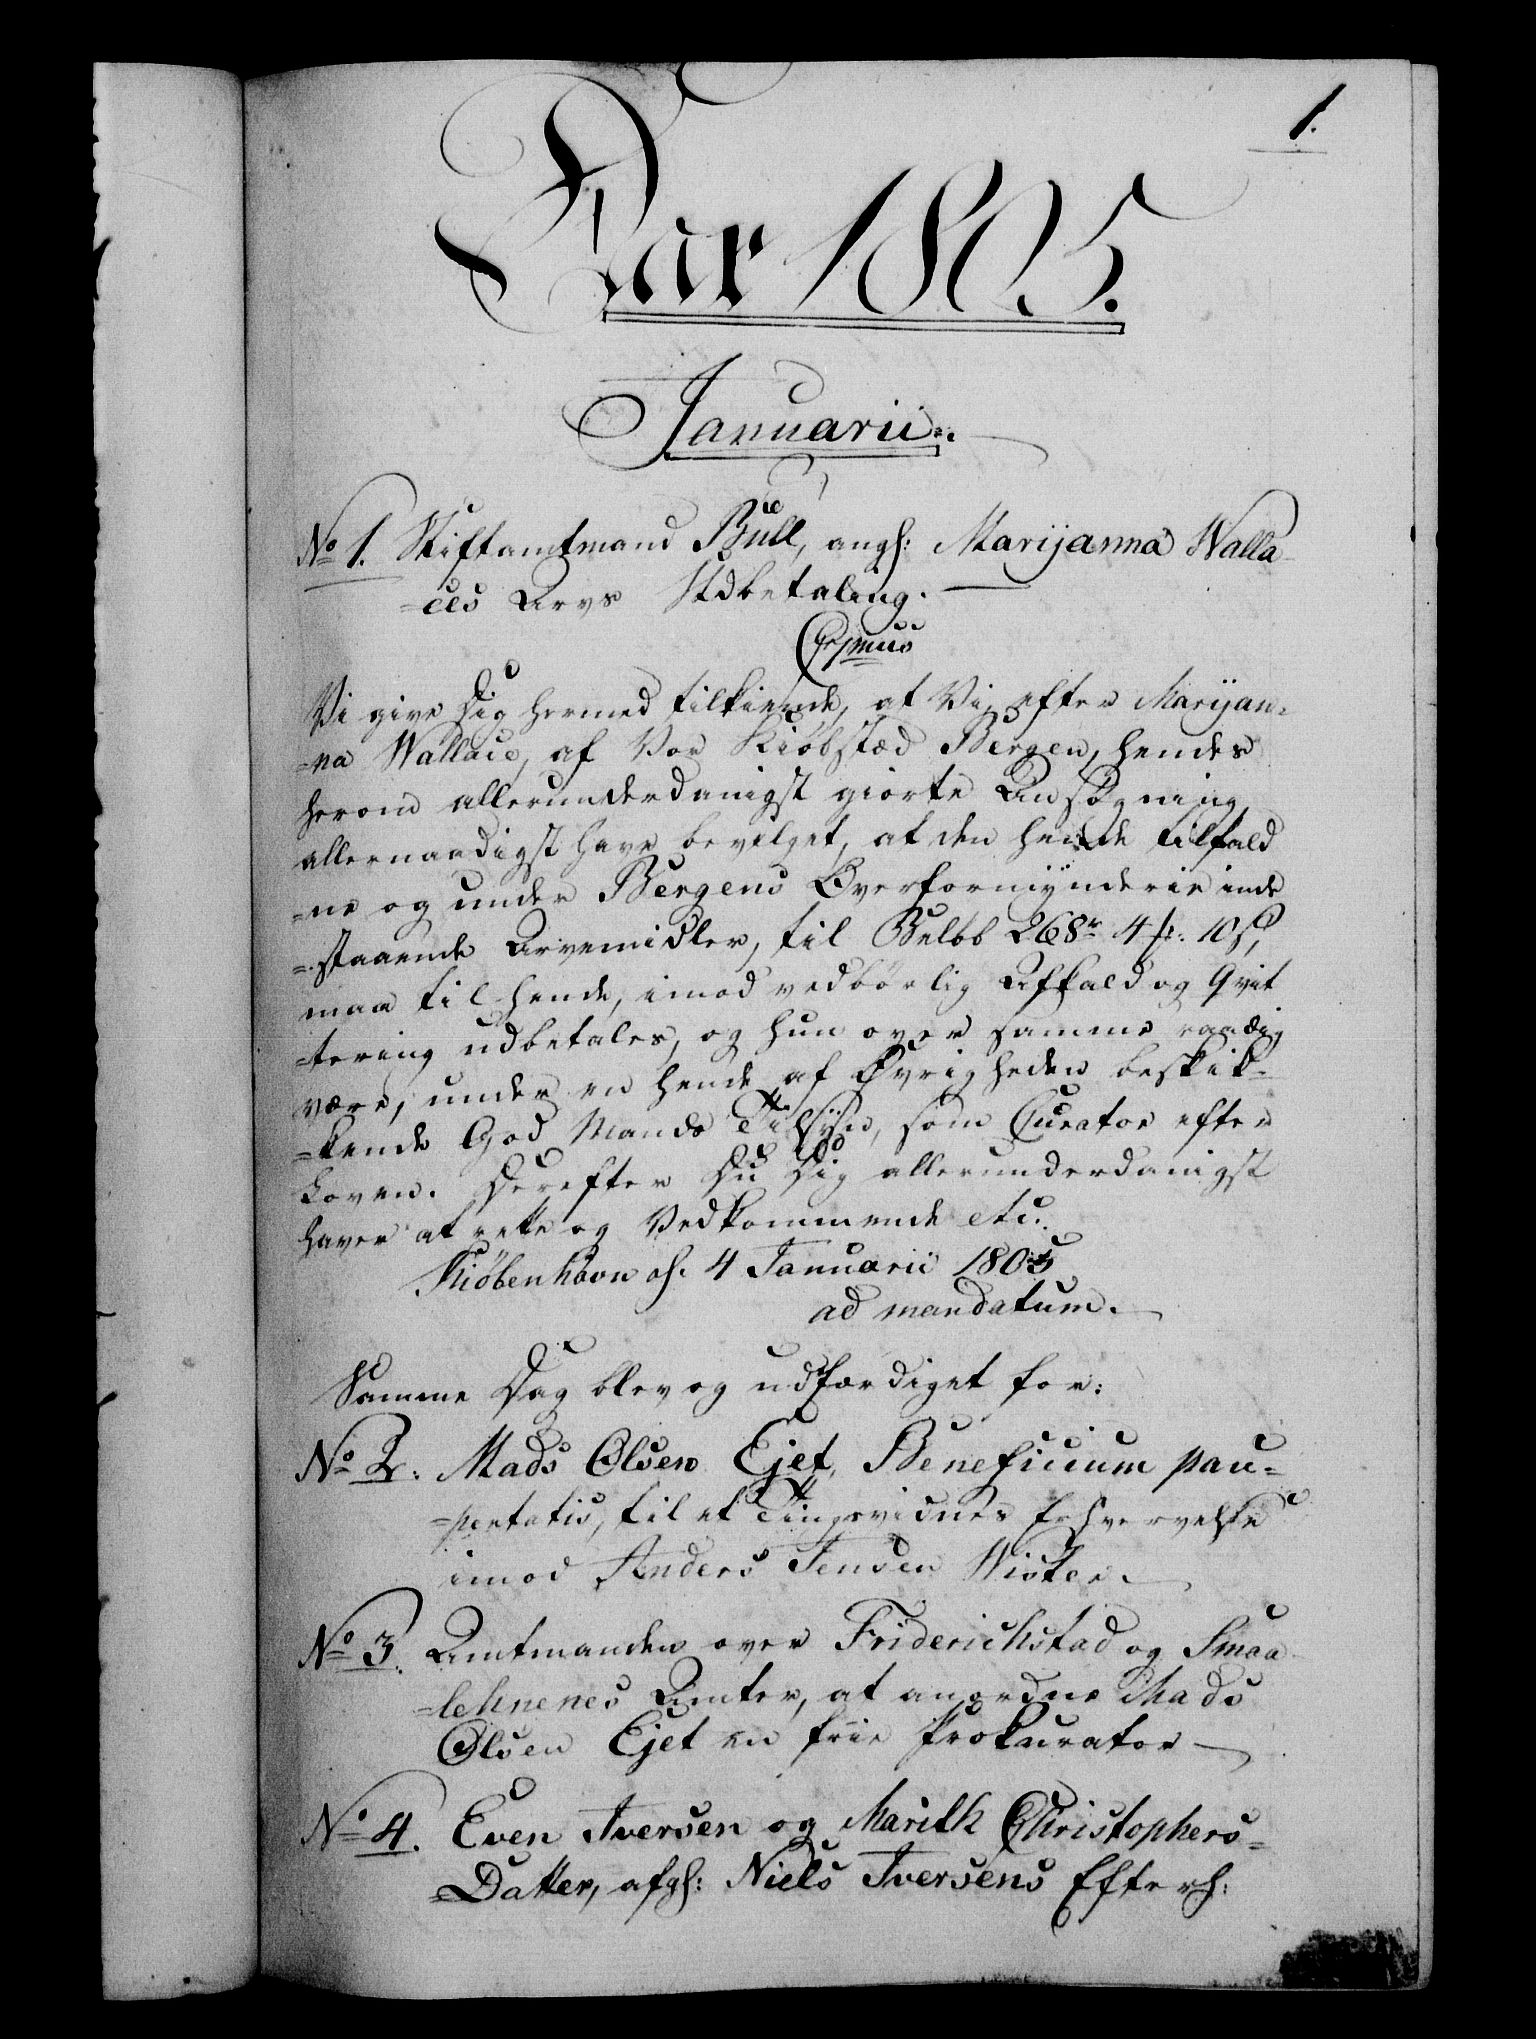 1.
Aar 1805.
Januarii.
No 1. Stiftamtmand Bull, angs: Marijanna Walla-
=ces Arvs Udbetaling.
Chrmus
Vi give Dig hermed tilkiende, at Vi, efter Marijan=
=na Wallace, af Vor Kiøbstæd Bergen, hendes
herom allerunderdanigst giorte Ansøgning,
allernaadigst have bevilget, at den hende tilfald
=ne og under Bergens Overformÿnderie inde
=staaende Arvemidler, til Beløb 268 rd 4 #. 10 s,
maa til hende, imod vedbørlig Affald og Qvit
=tering udbetales, og hun over samme raadig
være, under en hende af Øvrigheden beskik=
=kende God Mands Tilsÿn, som Curator efter
Loven. Derefter Du Dig allerunderdanigst
haver at rette og Vedkommende etc.
Kiøbenhavn d. 4 Januarii 1805
ad mandatum.
Samme Dag blev og udfærdiget for:
No 2. Mads Olsen Ejet, Beneficium pau=
=pertatis, til et Tingsvidnes Erhvervelse
imod Anders Jensen Wister.
No 3. Amtmanden over Friderichstad og Smaa
=lehnenes Amter, at anordne Mads
Olsen Ejet en frie Prokurator
No 4. Even Iversen og Marith Christophers=
=Datter, afgs: Niels Iversens Efterl: